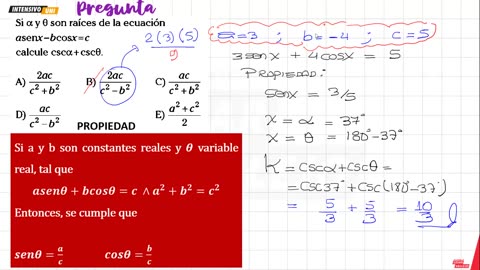 INTENSIVO UNI
Pregunta
Si α y θ son raíces de la ecuación
asenx-bcosx=c
calcule cscα+cscθ.
A) 2ac/(c²+b²) B) 2ac/(c²-b²) C) ac/(c²+b²)
D) ac/(c²-b²) E) (a²+c²)/2
2(3)(5)/9
PROPIEDAD
Si a y b son constantes reales y θ variable
real, tal que
asenθ + bcosθ = c ∧ a² + b² = c²
Entonces, se cumple que
senθ = a/c cosθ = b/c
a=3 ; b=-4 ; c=5
3senx + 4cosx = 5
PROPIEDAD:
senx = 3/5
x = α = 37°
x = θ = 180°-37°
K = cscα + cscθ =
= csc37° + csc(180°-37°)
= 5/3 + 5/3 = 10/3